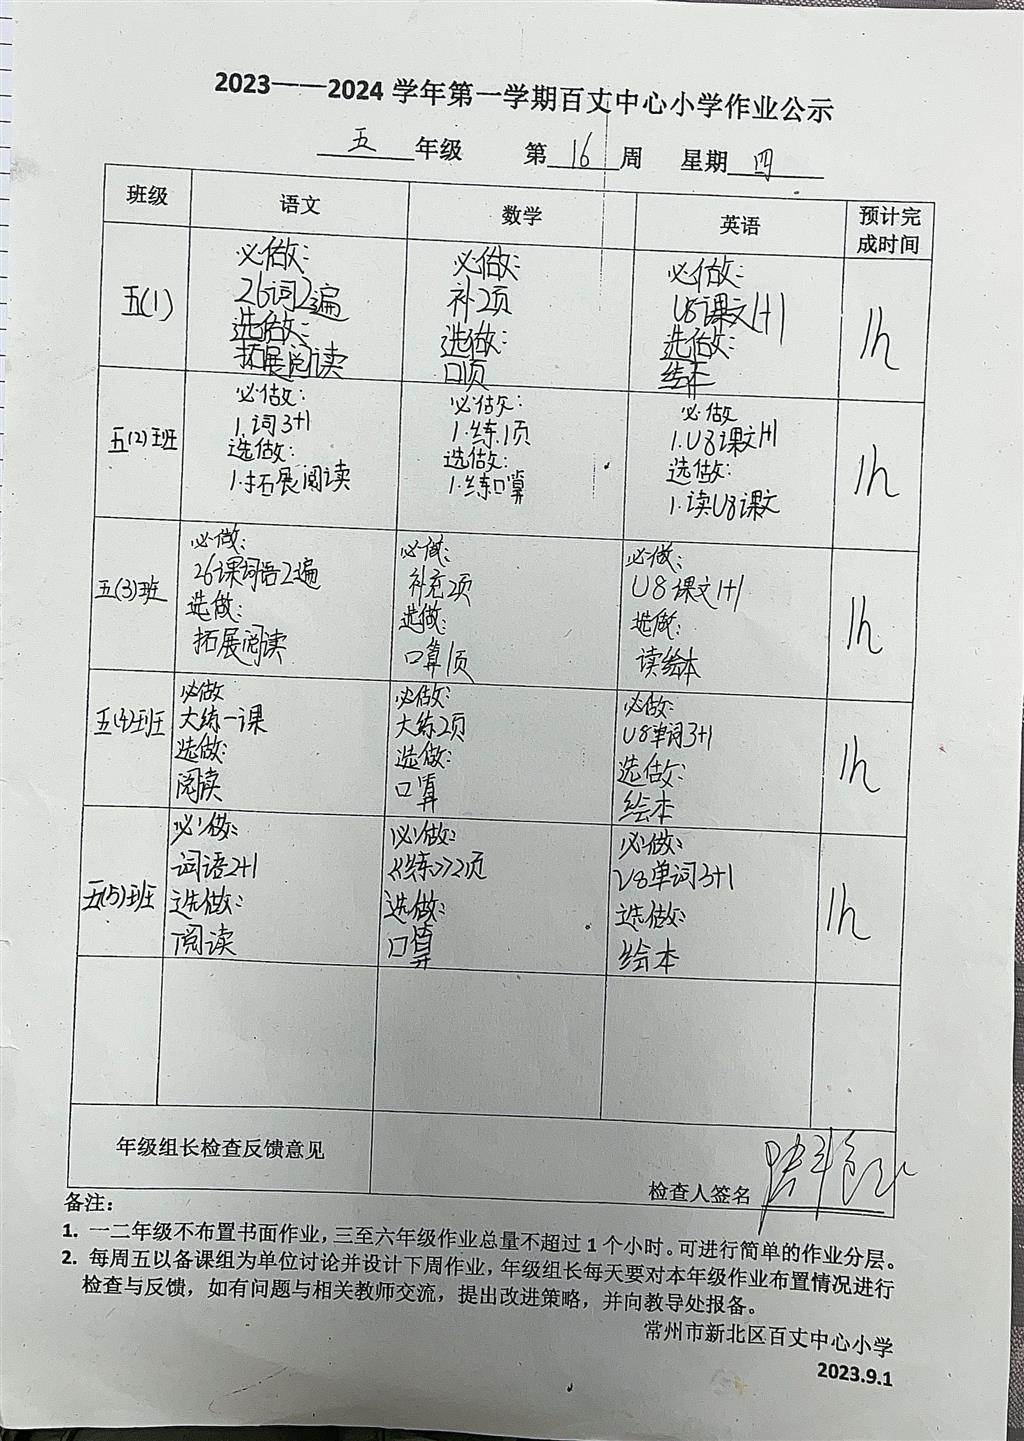 2023——2024 学年第一学期百丈中心小学作业公示
五 年级 第 16 周 星期 四
班级 语文 数学 英语 预计完成时间
五(1)
必做:
26词2遍
选做:
拓展阅读
必做:
补2页
选做:
口1页
必做:
U8课文1+1
选做:
绘本
1h
五(2)班
必做:
1.词3+1
选做:
1.拓展阅读
必做:
1.练1页
选做:
1.练口算
必做
1.U8课文1+1
选做:
1.读U8课文
1h
五(3)班
必做:
26课词语2遍
选做:
拓展阅读
必做:
补充2页
选做:
口算1页
必做:
U8课文1+1
选做:
读绘本
1h
五(4)班
必做
大练一课
选做:
阅读
必做:
大练2页
选做:
口算
必做:
U8单词3+1
选做:
绘本
1h
五(5)班
必做:
词语2+1
选做:
阅读
必做:
《练》2页
选做:
口算
必做:
U8单词3+1
选做:
绘本
1h
年级组长检查反馈意见
检查人签名
备注:
1. 一二年级不布置书面作业，三至六年级作业总量不超过 1 个小时。可进行简单的作业分层。
2. 每周五以备课组为单位讨论并设计下周作业，年级组长每天要对本年级作业布置情况进行
检查与反馈，如有问题与相关教师交流，提出改进策略，并向教导处报备。
常州市新北区百丈中心小学
2023.9.1